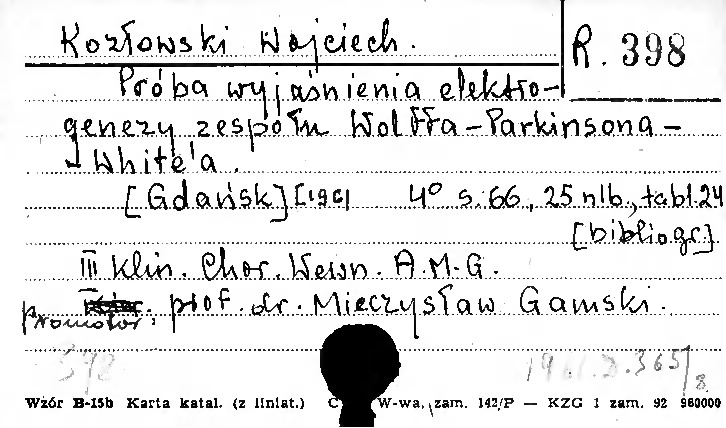 Kozłowski Wojciech.
R. 398
Próba wyjaśnienia elektro-
genezy zespołu Wolffa-Parkinsona-
- White'a.
[Gdańsk] 4° s. 66, 25 nlb., tabl. 24
[bibliogr.]
III Klin. Chor. Wewn. A.M.G.
Promotor: prof. dr. Mieczysław Gamski.
398
Wzór B-15b Karta katal. (z liniat.) W-wa, zam. 142/P — KZG 1 zam. 92 980000